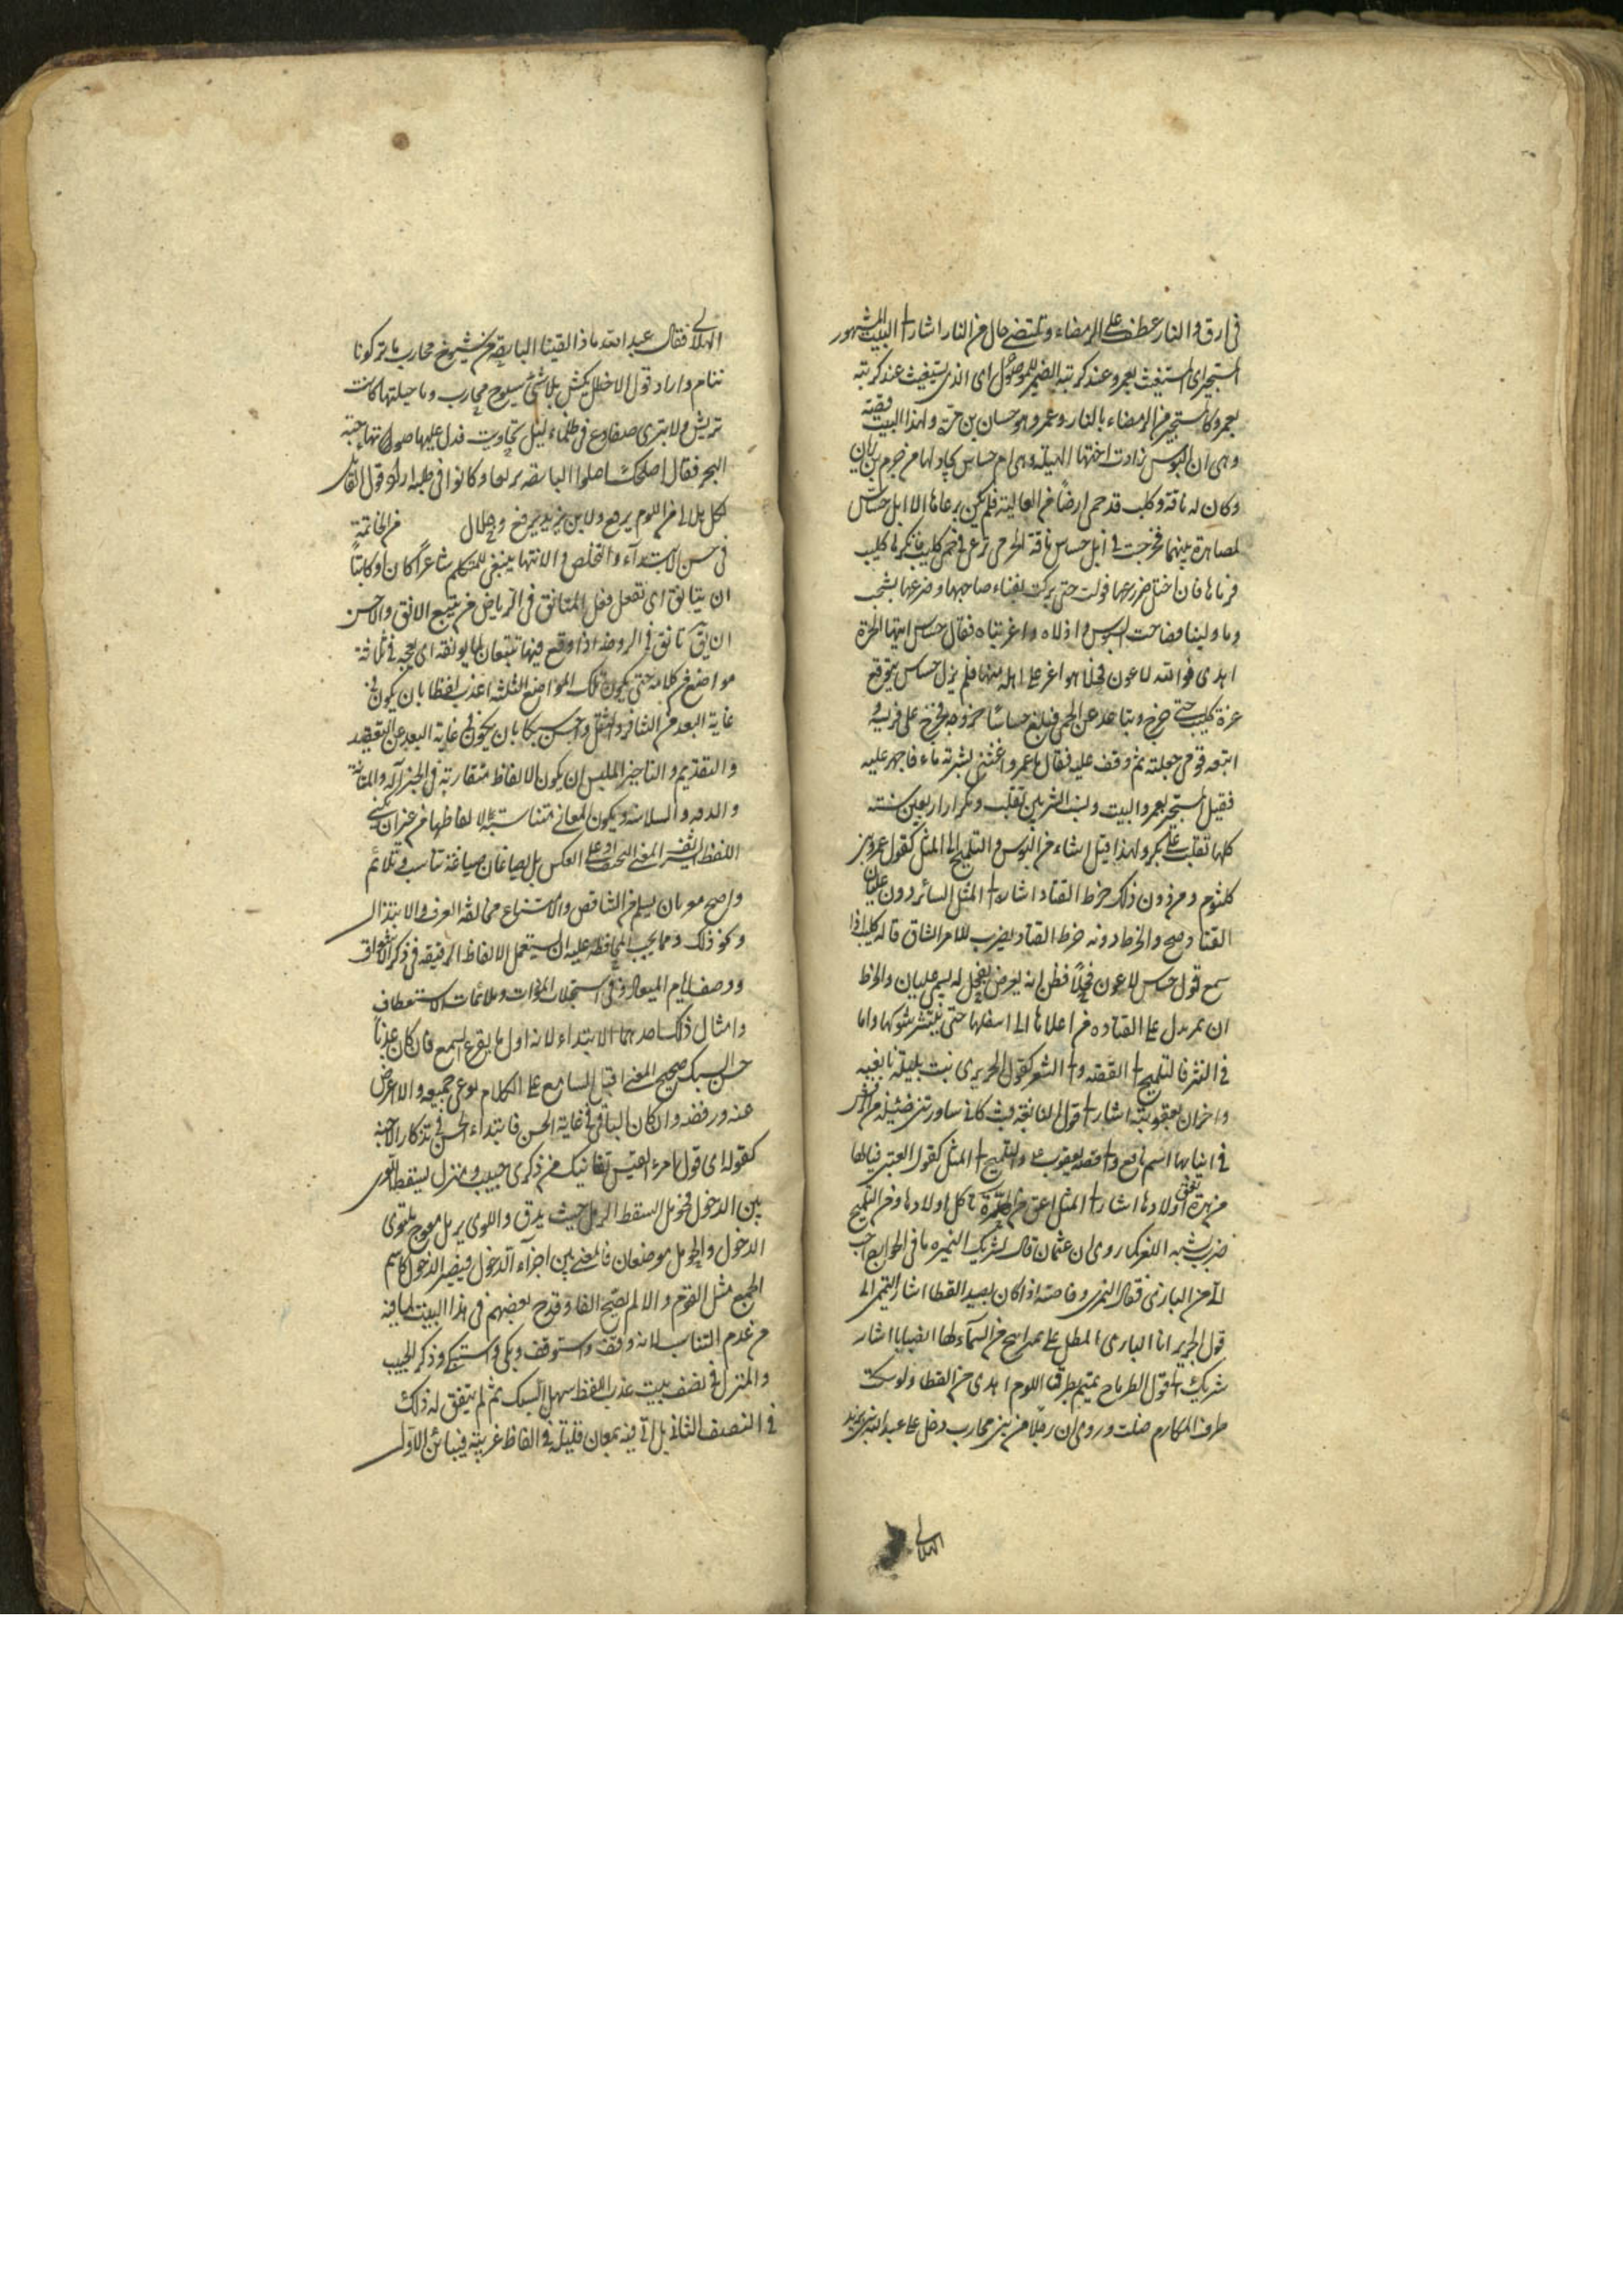 فى ارق والنار عطف على الرمضاء وتلتضى حال من النار اشار الى البيت المشهور
المستجير اى المستغيث بعمرو عند كربته الضمير للموصول اى الذى يستغيث عند كربته
بعمرو كالمستجير من الرمضاء بالنار وعمرو هو حسان بن مرة ولهذا البيت قصة
وهى ان البسوس زارت اختها الهيلة وهى ام جساس بجار لها من جرم بن زبان
وكان له ناقة وكليب قد حمى ارضا من العالية فلم يكن يرعاها الا ابل جساس
لمصاهرة بينهما فخرجت فى ابل جساس ناقة الجرمى ترعى فى حمى كليب فانكرها كليب
فرماها فاختل ضرعها فولت حتى بركت بفناء صاحبها وضرعها يشخب
دما ولبنا فصاحت البسوس وا ذلاه وا غربتاه فقال جساس ايتها الحرة
اهدئى فوالله لاعقرن فحلا هو اعز على اهله منها فلم يزل جساس يتوقع
غرة كليب حتى خرج وتباعد عن الحى فبلغ جساسا خروجه فخرج على فرسه و
اتبعه فرمى صلبه ثم وقف عليه فقال يا عمرو اغثنى بشربة ماء فاجهز عليه
فقيل المستجير بعمرو البيت ونشب الشر بين تغلب وبكر اربعين سنة
كلها تغلب على بكر ولهذا قيل اشأم من البسوس والتلميح الى المثل كقول عمرو بن
كلثوم ومن دون ذلك خرط القتاد اشار الى المثل السائر دون عليان
القتاد والخرط ودونه خرط القتاد يضرب للامر الشاق قاله كليب اذا
سمع قول جساس لاعقرن فحلا فظن انه يعرض بفحل له يسمى عليان والخرط
ان تمر يدك على القتادة من اعلاها الى اسفلها حتى ينتثر شوكها واما
فى النثر فالتلميح الى القصة والى الشعر كقول الحريرى بت بليلة نابغية
واحزان يعقوبية اشار الى قول النابغة فبت كانى ساورتنى ضئيلة من الرقش
فى انيابها السم ناقع والى قصة يعقوب ع والتلميح الى المثل كقول العتبى فيالها
من هرة تعق اولادها اشار الى المثل اعق من الهرة تاكل اولادها ومن التلميح
ضرب يشبه اللغز كما روى ان عثمان قال لشريك النميرى ما فى الجوارح احب
الى من البازى فقال النميرى وخاصة اذا كان يصيد القطا اشار التميمى الى
قول الجرير انا البازى المطل على نمير اتيح من السماء لها انصبابا اشار
شريك الى قول الطرماح تميم بطرق اللوم اهدى من القطا ولو سلكت
طرق المكارم ضلت وروى ان رجلا من بنى محارب دخل على عبد الله بن يزيد
الهلالى
الهلالى فقال عبد الله ماذا لقينا البارحة من شيوخ محارب ما تركونا
ننام واراد قول الاخطل تكش بلا شىء شيوخ محارب وما خلتها كانت
تريش ولا تبرى ضفادع فى ظلماء ليل تجاوبت فدل عليها صوتها حية
البحر فقال اصلحك الله اضلوا البارحة برقعا وكانوا فى طلبه اراد قول القائل
لكل هلالى من اللوم برقع ولابن يزيد برقع وجلال من الخاتمة
فى حسن الابتداء والتخلص والانتها ينبغى للمتكلم شاعرا كان او كاتبا
ان يتانق اى تفعل فعل المتانق فى الرياض من تتبع الانق والاحسن
ان يق تانق فى الروضة اذا وقع فيها متتبعا لما يونقه اى يعجبه فى ثلاثة
مواضع من كلامه حتى يكون تلك المواضع الثلثة اعذب لفظا بان يكون فى
غاية البعد من التنافر والثقل واحسن سبكا بان يكون فى غاية البعد عن التعقيد
والتقديم والتاخير الملبس وان يكون الالفاظ متقاربة فى الجزالة والمتانة
والرقة والسلاسة ويكون المعانى مناسبة لالفاظها من غير ان يكتسى
اللفظ الشريف المعنى السخيف او على العكس بل يصاغان صياغة تناسب وتلائم
واصح معنى بان يسلم من التناقض والامتناع ومخالفة العرف والابتذال
ونحو ذلك ومما يجب المحافظة عليه ان يستعمل الالفاظ الرقيقة فى ذكر الاشواق
ووصف ايام البعاد وفى استجلاب المودات وملائمات الاستعطاف
وامثال ذلك احدهما الابتداء لانه اول ما يقرع السمع فان كان عذبا
حسن السبك صحيح المعنى اقبل السامع على الكلام فوعى جميعه والا اعرض
عنه ورفضه وان كان الباقى فى غاية الحسن فالابتداء الحسن فى تذكار الاحبة
كقوله اى قول امرء القيس قفا نبك من ذكرى حبيب ومنزل بسقط اللوى
بين الدخول فحومل السقط الرمل حيث يدق واللوى رمل معوج ملتوى
الدخول والحومل موضعان فالمعنى بين اجزاء الدخول فيصير الدخول كاسم
الجمع مثل القوم والا لم يصح الفا وقدح بعضهم فى هذا البيت لما فيه
من عدم التناسب لانه وقف واستوقف وبكى واستبكى وذكر الحبيب
والمنزل فى نصف بيت عذب اللفظ سهل السبك ثم لم يتفق له ذلك
فى النصف الثانى بل اتى فيه بمعان قليلة فى الفاظ غريبة فباين الاول